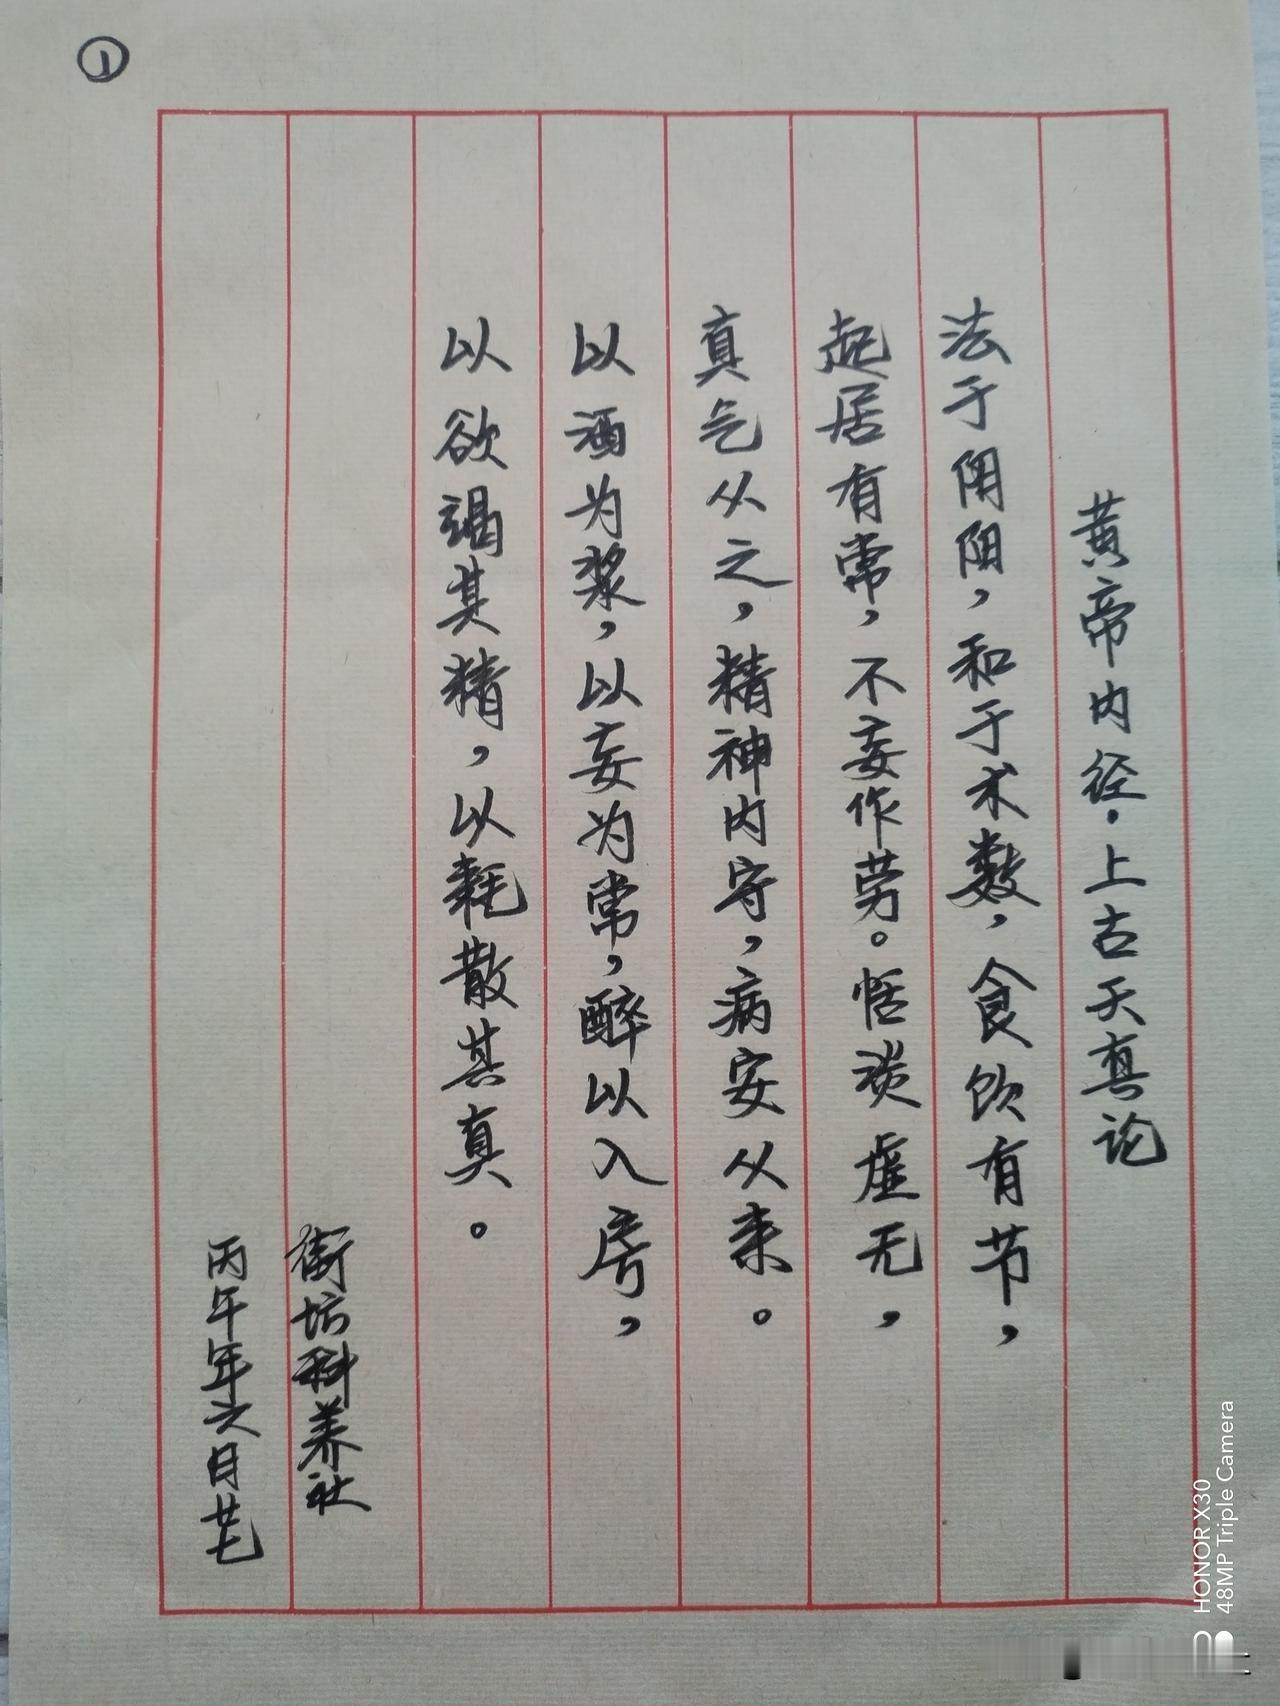 ①
黄帝内经·上古天真论
法于阴阳，和于术数，食饮有节，
起居有常，不妄作劳。恬淡虚无，
真气从之，精神内守，病安从来。
以酒为浆，以妄为常，醉以入房，
以欲竭其精，以耗散其真。
街坊科养社
丙午年六月廿七
HONOR X30
48MP Triple Camera